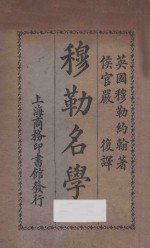 英國穆勒約翰著
侯官嚴 復譯
穆勒名學
上海商務印書館發行